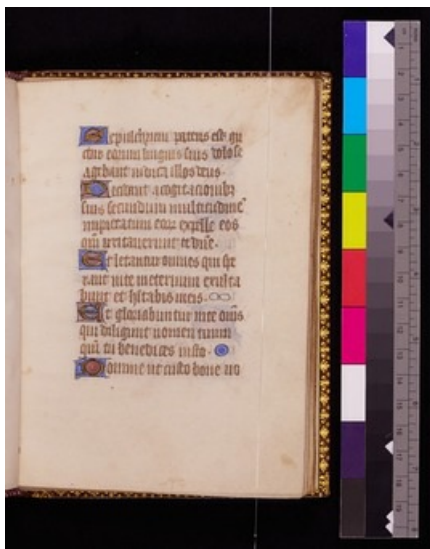 Sepulchrum patens est gu
ttur eorum linguis suis dolose
agebant iudica illos deus
Decidant a cogitacionibz
suis secundum multitudinē
impietatum eoz expelle eos
qm̄ irritauerunt te dn̄e
Et letentur omnes qui spe
rant in te in eternum exulta
bunt et hitabis in eis
Et gloriabuntur in te om̄s
qui diligunt nomen tuum
qm̄ tu benedices iusto
Domine ut scuto bone uo